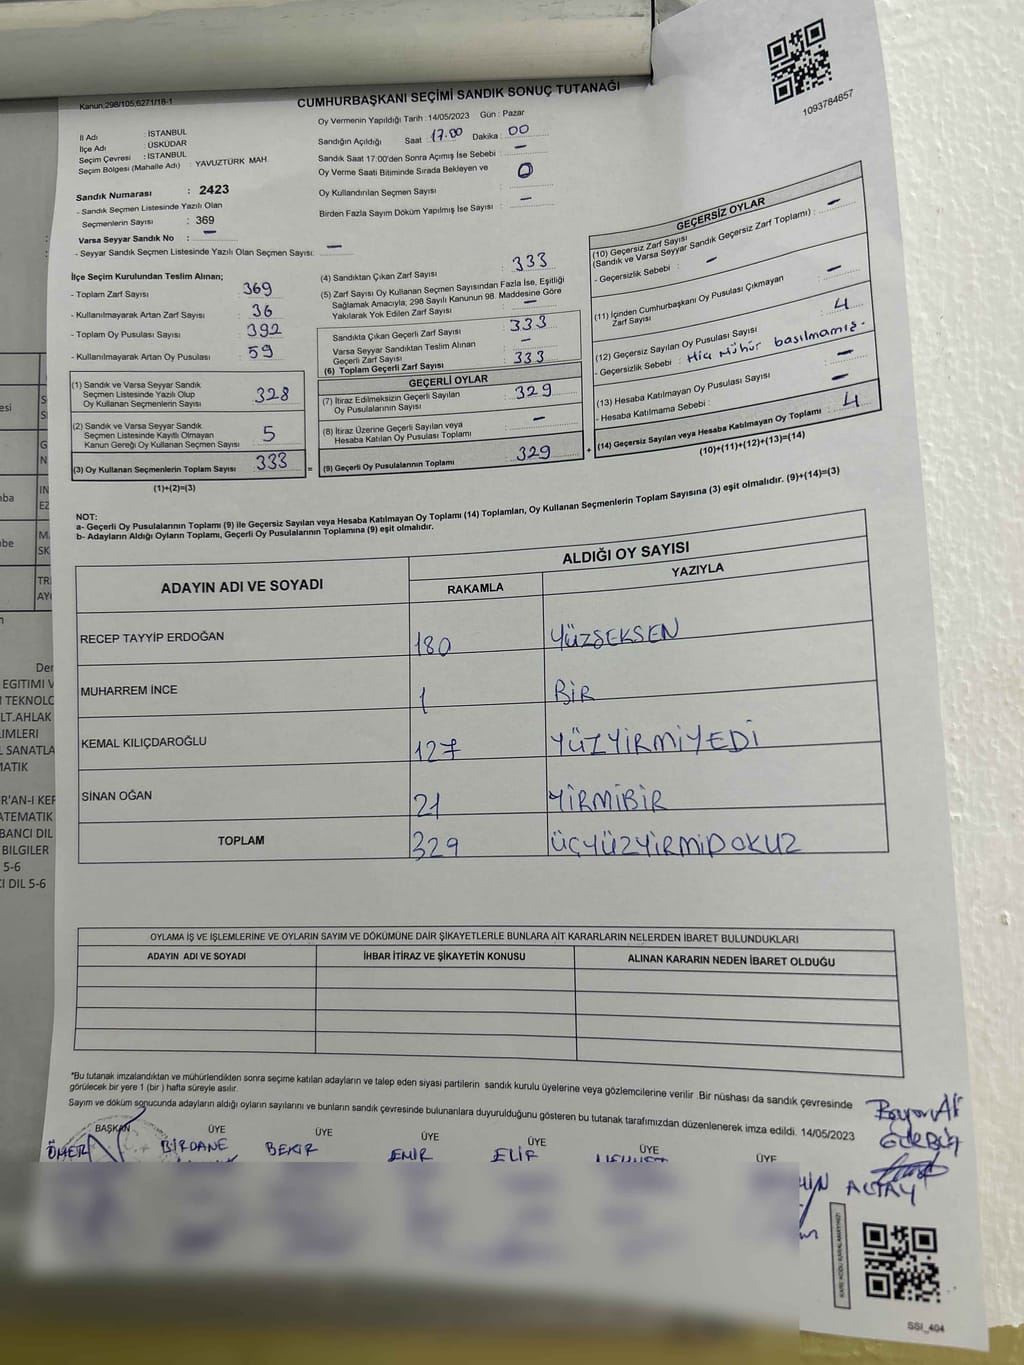 1093784857
Kanun,298/105,6271/18-1
CUMHURBAŞKANI SEÇİMİ SANDIK SONUÇ TUTANAĞI
İl Adı : İSTANBUL
İlçe Adı : ÜSKÜDAR
Seçim Çevresi : İSTANBUL
Seçim Bölgesi (Mahalle Adı) : YAVUZTÜRK MAH.
Sandık Numarası : 2423
- Sandık Seçmen Listesinde Yazılı Olan
Seçmenlerin Sayısı : 369
Varsa Seyyar Sandık No : —
- Seyyar Sandık Seçmen Listesinde Yazılı Olan Seçmen Sayısı: —
Oy Vermenin Yapıldığı Tarih : 14/05/2023 Gün : Pazar
Sandığın Açıldığı Saat 17.00 Dakika : 00
Sandık Saat 17:00'den Sonra Açımış İse Sebebi : —
Oy Verme Saati Bitiminde Sırada Bekleyen ve
Oy Kullandırılan Seçmen Sayısı : 0
Birden Fazla Sayım Döküm Yapılmış İse Sayısı : —
İlçe Seçim Kurulundan Teslim Alınan;
- Toplam Zarf Sayısı 369
- Kullanılmayarak Artan Zarf Sayısı : 36
- Toplam Oy Pusulası Sayısı : 392
- Kullanılmayarak Artan Oy Pusulası : 59
(1) Sandık ve Varsa Seyyar Sandık
Seçmen Listesinde Yazılı Olup
Oy Kullanan Seçmenlerin Sayısı : 328
(2) Sandık ve Varsa Seyyar Sandık
Seçmen Listesinde Kayıtlı Olmayan
Kanun Gereği Oy Kullanan Seçmen Sayısı : 5
(3) Oy Kullanan Seçmenlerin Toplam Sayısı : 333
(1)+(2)=(3)
(4) Sandıktan Çıkan Zarf Sayısı : 333
(5) Zarf Sayısı Oy Kullanan Seçmen Sayısından Fazla İse, Eşitliği
Sağlamak Amacıyla, 298 Sayılı Kanunun 98. Maddesine Göre
Yakılarak Yok Edilen Zarf Sayısı : —
Sandıkta Çıkan Geçerli Zarf Sayısı : 333
Varsa Seyyar Sandıktan Teslim Alınan
Geçerli Zarf Sayısı : —
(6) Toplam Geçerli Zarf Sayısı : 333
GEÇERLİ OYLAR
(7) İtiraz Edilmeksizin Geçerli Sayılan
Oy Pusulalarının Sayısı : 329
(8) İtiraz Üzerine Geçerli Sayılan veya
Hesaba Katılan Oy Pusulası Toplamı : —
= (9) Geçerli Oy Pusulalarının Toplamı : 329
GEÇERSİZ OYLAR
(10) Geçersiz Zarf Sayısı
(Sandık ve Varsa Seyyar Sandık Geçersiz Zarf Toplamı) : —
- Geçersizlik Sebebi : —
(11) İçinden Cumhurbaşkanı Oy Pusulası Çıkmayan
Zarf Sayısı : —
(12) Geçersiz Sayılan Oy Pusulası Sayısı : 4
- Geçersizlik Sebebi : Hiç Mühür basılmamış.
(13) Hesaba Katılmayan Oy Pusulası Sayısı : —
- Hesaba Katılmama Sebebi : —
+ (14) Geçersiz Sayılan veya Hesaba Katılmayan Oy Toplamı : 4
(10)+(11)+(12)+(13)=(14)
NOT:
a- Geçerli Oy Pusulalarının Toplamı (9) ile Geçersiz Sayılan veya Hesaba Katılmayan Oy Toplamı (14) Toplamları, Oy Kullanan Seçmenlerin Toplam Sayısına (3) eşit olmalıdır. (9)+(14)=(3)
b- Adayların Aldığı Oyların Toplamı, Geçerli Oy Pusulalarının Toplamına (9) eşit olmalıdır.
ADAYIN ADI VE SOYADI
ALDIĞI OY SAYISI
RAKAMLA YAZIYLA
RECEP TAYYİP ERDOĞAN 180 YÜZSEKSEN
MUHARREM İNCE 1 BİR
KEMAL KILIÇDAROĞLU 127 YÜZYİRMİYEDİ
SİNAN OĞAN 21 YİRMİBİR
TOPLAM 329 ÜÇYÜZYİRMİDOKUZ
OYLAMA İŞ VE İŞLEMLERİNE VE OYLARIN SAYIM VE DÖKÜMÜNE DAİR ŞİKAYETLERLE BUNLARA AİT KARARLARIN NELERDEN İBARET BULUNDUKLARI
ADAYIN ADI VE SOYADI İHBAR İTİRAZ VE ŞİKAYETİN KONUSU ALINAN KARARIN NEDEN İBARET OLDUĞU
*Bu tutanak imzalandıktan ve mühürlendikten sonra seçime katılan adayların ve talep eden siyasi partilerin sandık kurulu üyelerine veya gözlemcilerine verilir .Bir nüshası da sandık çevresinde
görülecek bir yere 1 (bir ) hafta süreyle asılır.
Sayım ve döküm sonucunda adayların aldığı oyların sayılarını ve bunların sandık çevresinde bulunanlara duyurulduğunu gösteren bu tutanak tarafımızdan düzenlenerek imza edildi. 14/05/2023
BAŞKAN ÜYE ÜYE ÜYE ÜYE ÜYE ÜYE
ÖMER BİRDANE BEKİR EMİR ELİF
ALTAY
SSI_404
EGITIMI V
TEKNOLO
LT.AHLAK
İMLERİ
SANATLA
MATIK
R'AN-I KER
ATEMATIK
BANCI DIL
BILGILER
5-6
I DIL 5-6